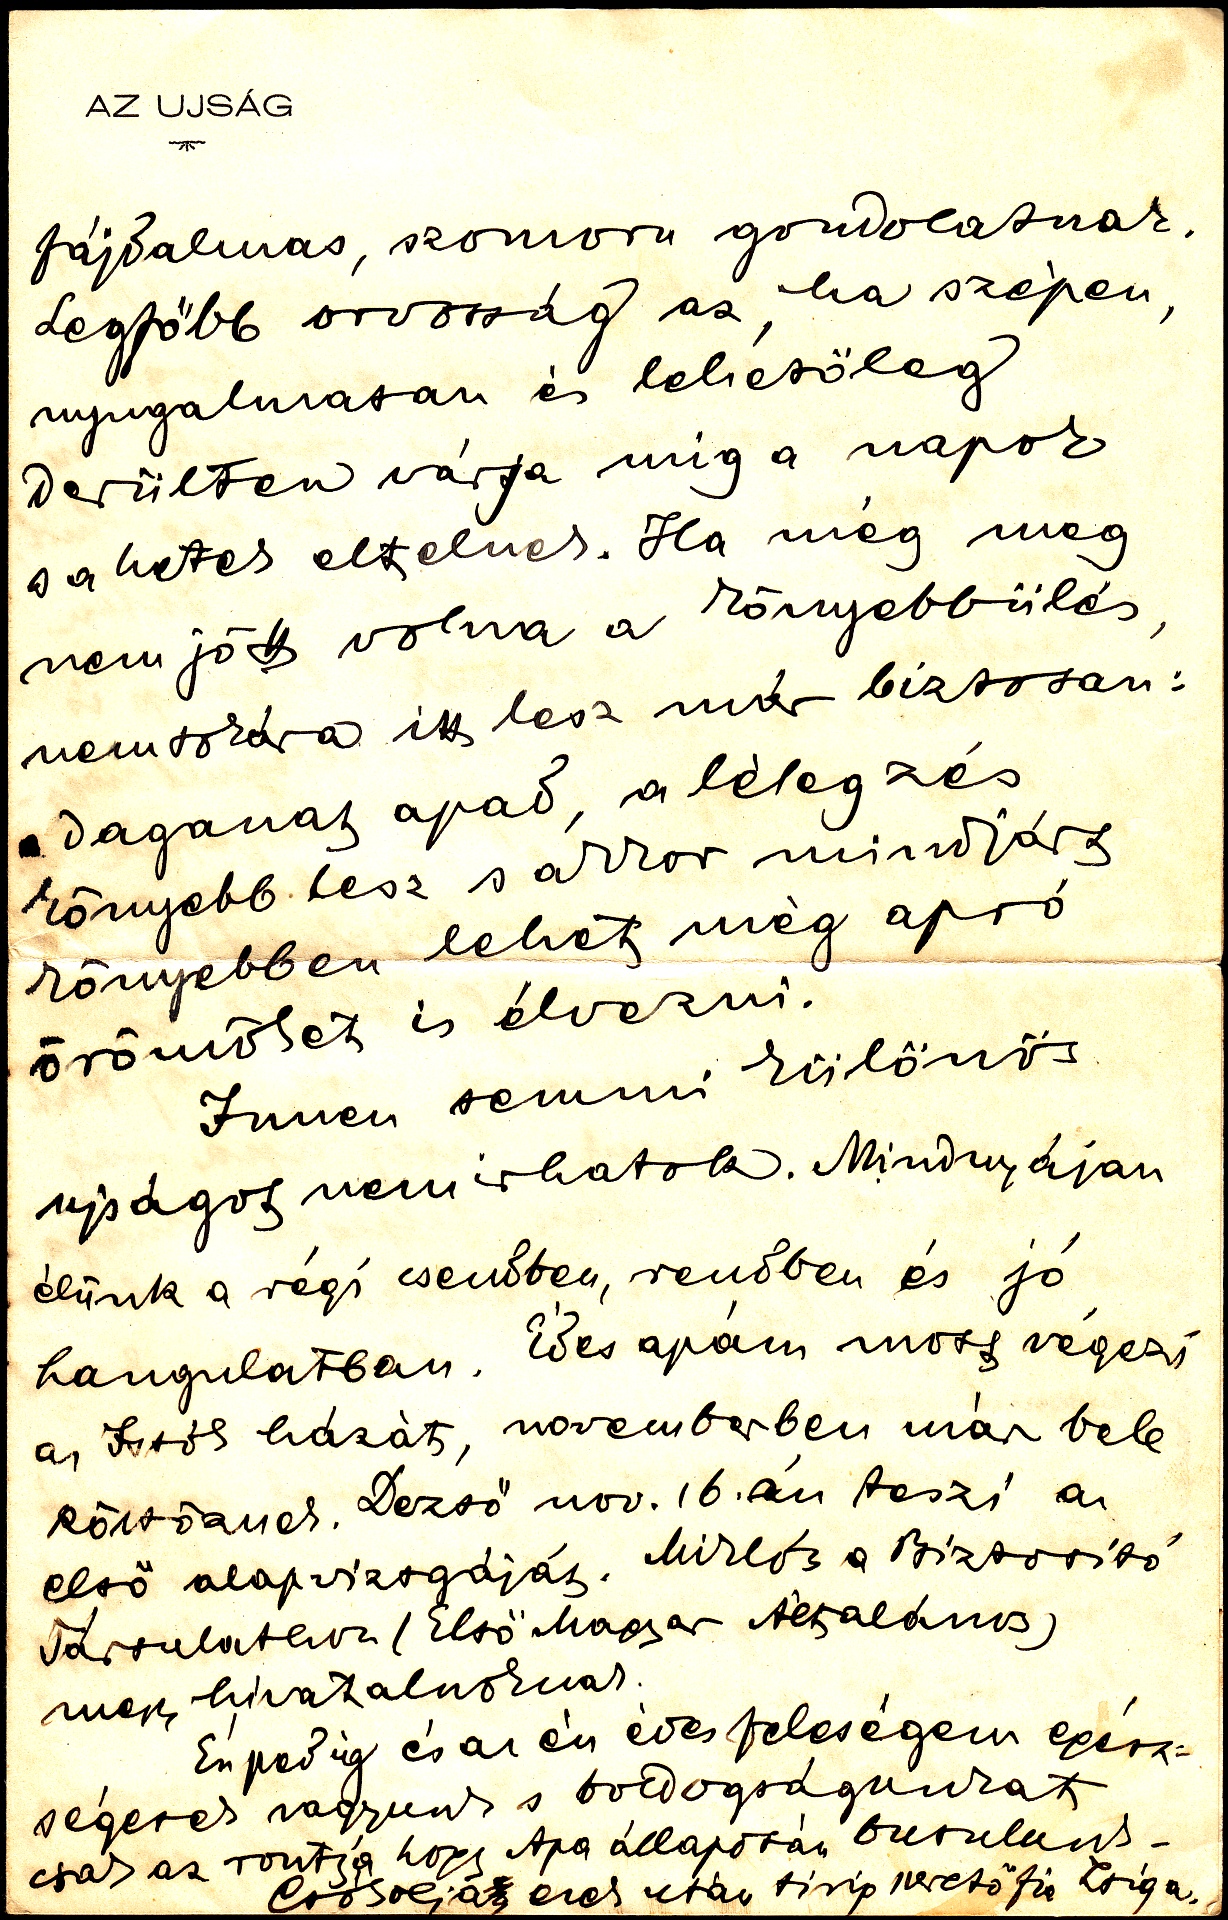 AZ UJSÁG
fájdalmas, szomoru gondolatnak.
Legfőbb orvosság az, ha szépen,
nyugalmasan és lehetőleg
derülten várja mig a napok
s a hetek eltelnek. Ha még meg
nem jött volna a könyebbülés,
nemsokára itt lesz már biztosan:
a daganat apad, a lélegzés
könyebb lesz s akkor mindjárt
könyebben lehet még apró
örömöket is élvezni.
Innen semmi különös
ujságot nem irhatok. Mindnyájan
élünk a régi csendben, rendben és jó
hangulatban. Édes apám most végezi
az házát, novemberben már bele
költöznek. Dezső nov. 16.-án teszi az
első alapvizsgáját. Miklós a Biztositó
Társulathoz (Első Magyar Általános)
megy hivatalnoknak.
Én pedig és az én édes feleségem egész-
ségesek vagyunk s boldogságunkat
csak az rontja hogy Apa állapotán busulunk -
Csókolják ezek után szivig fia Zsiga.